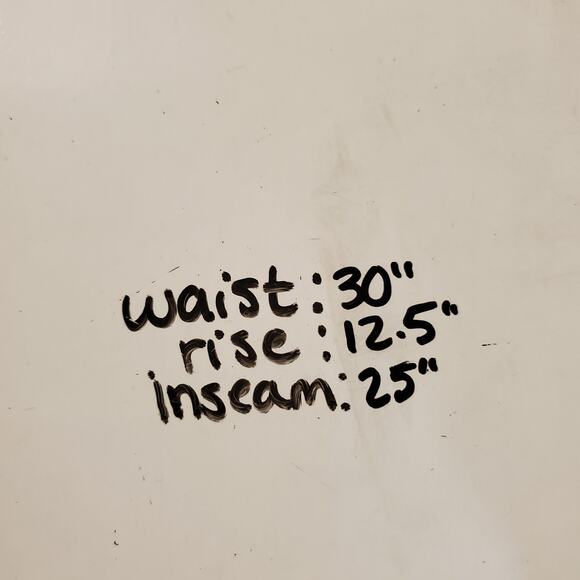 waist: 30"
rise: 12.5"
inseam: 25"